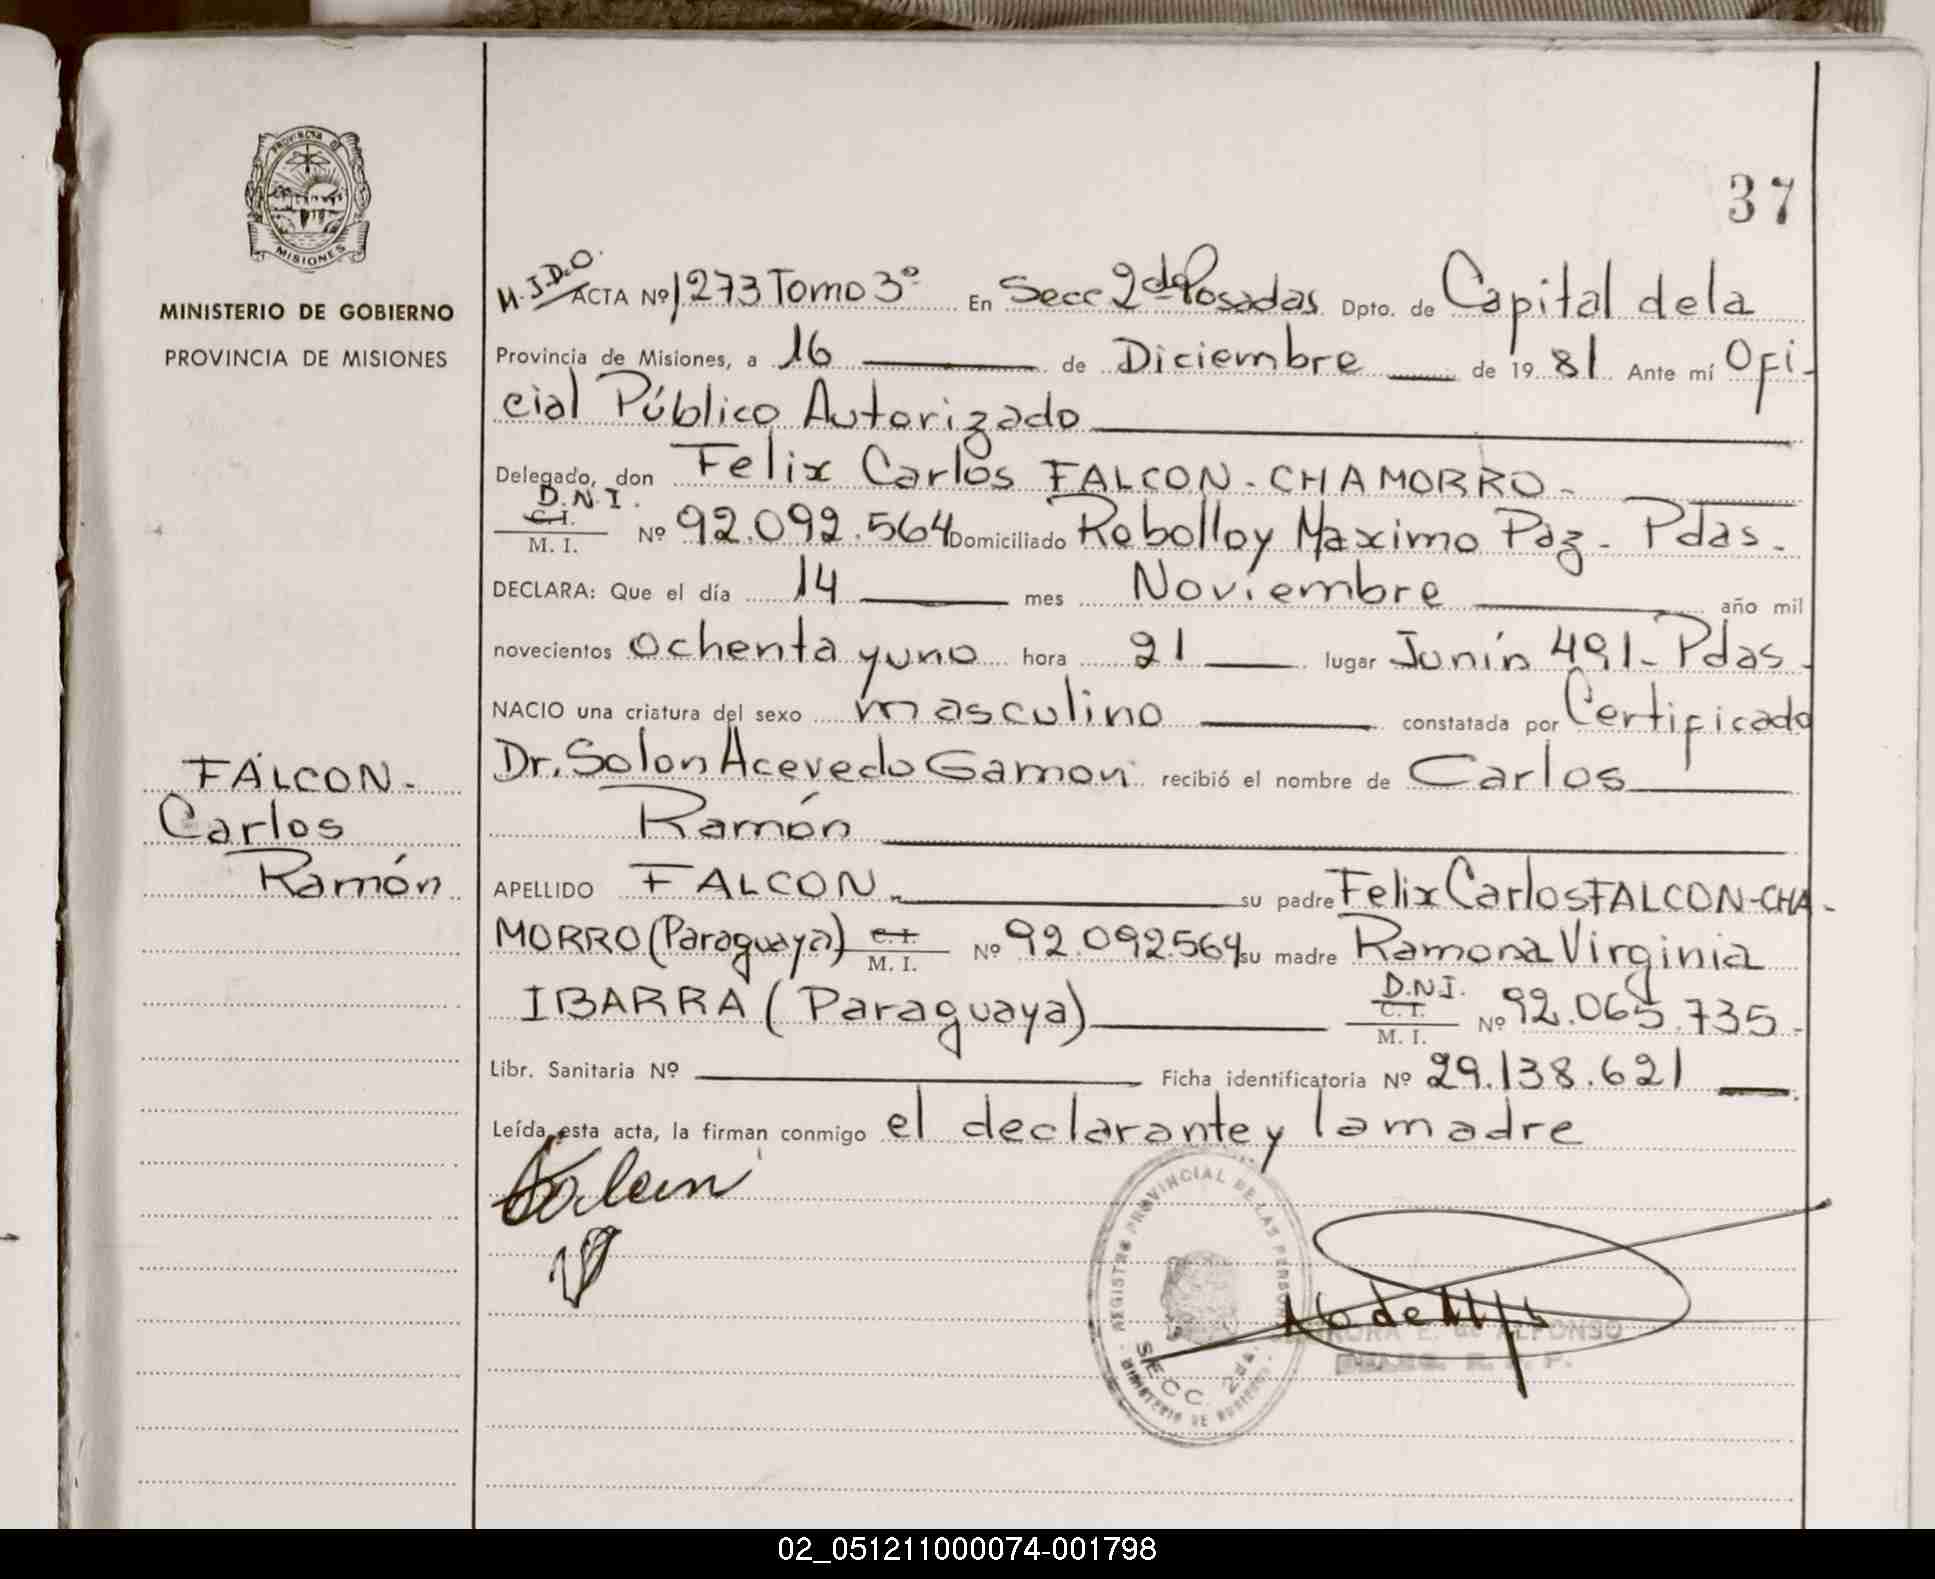 PROVINCIA DE
MISIONES
MINISTERIO DE GOBIERNO
PROVINCIA DE MISIONES
FALCON.
Carlos
Ramón
37
ACTA Nº 1273 Tomo 3º En Secc 2da Posadas Dpto. de Capital de la
Provincia de Misiones, a 16 de Diciembre de 19 81 Ante mí Ofi-
cial Público Autorizado
Delegado, don Felix Carlos FALCON-CHAMORRO-
D.N.I.
C.I.
M. I. Nº 92.092.564 Domiciliado Rebollo y Maximo Paz - Pdas.
DECLARA: Que el día 14 mes Noviembre año mil
novecientos ochenta y uno hora 21 lugar Junín 491- Pdas.
NACIO una criatura del sexo masculino constatada por Certificado
Dr. Solon Acevedo Gamon recibió el nombre de Carlos
Ramón
APELLIDO FALCON su padre Felix Carlos FALCON-CHA-
MORRO (Paraguaya) C.I. M. I. Nº 92.092.564 su madre Ramona Virginia
IBARRA (Paraguaya) D.N.I. C.I. M. I. Nº 92.065.735.
Libr. Sanitaria Nº Ficha identificatoria Nº 29.138.621
Leída esta acta, la firman conmigo el declarante y la madre
REGISTRO PROVINCIAL DE LAS PERSONAS
SECC. 2da.
MINISTERIO DE GOBIERNO
E. de ALFONSO
02_051211000074-001798